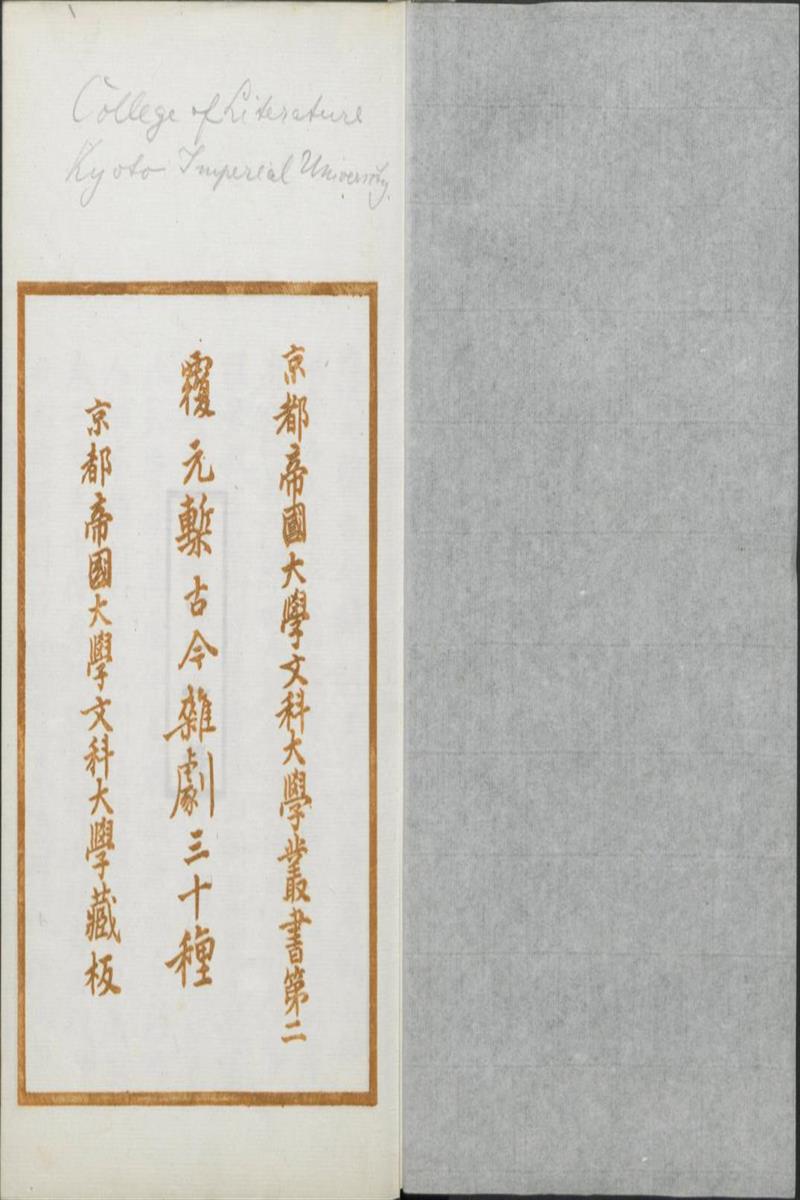 College of Literature
Kyoto Imperial University.
京都帝國大學文科大學叢書第二
覆元槧古今雜劇三十種
京都帝國大學文科大學藏板